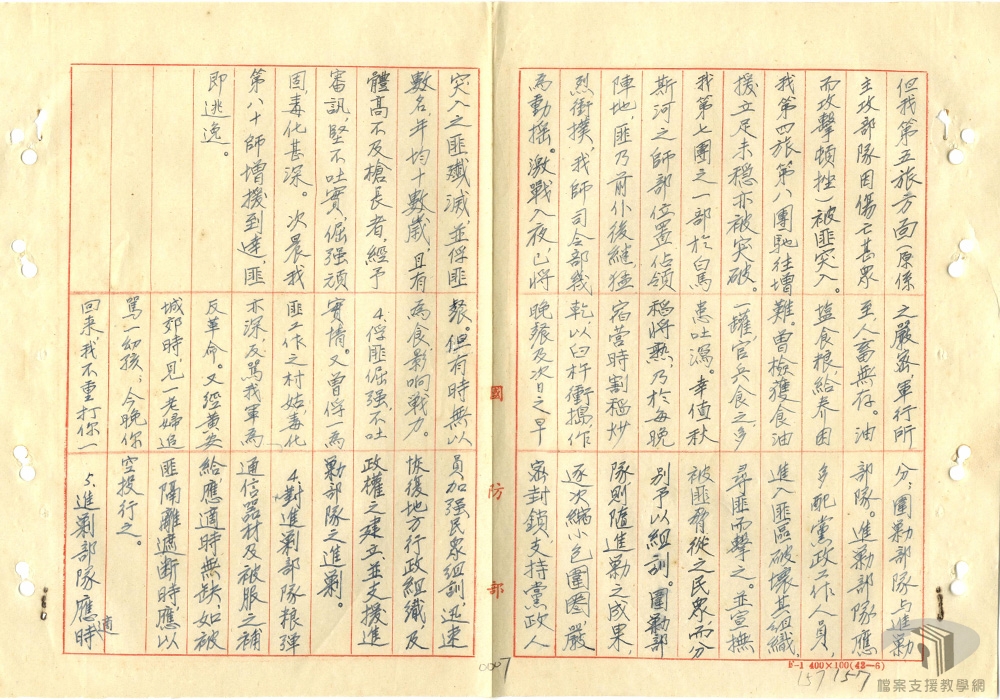 但我第五旅方面(原係
主攻部隊因傷亡甚眾
而攻擊頓挫)被匪突入。
我第四旅第八團馳往增
援立足未穩亦被突破。
我第七團之一部於白馬
斯河之師部位置佔領
陣地,匪乃前仆後繼猛
烈衝撲,我師司令部幾
為動搖。激戰入夜,已將
突入之匪殲滅並俘匪
數名年均十數歲,且有
體高不及槍長者,經予
審訊,堅不吐實,倔强頑
固,毒化甚深。次晨我
第八十師增援到達,匪
即逃逸。
之嚴密,軍行所
至,人畜無存。油
塩食粮給养困
難。曾檢獲食油
一罐,官兵食之,多
患吐瀉。幸值秋
稻將熟,乃於每晚
宿营時割稻炒
乾,以臼杵衝搗,作
晚餐及次日之早
餐。但有時無以
為食,影响戰力。
4.俘匪倔强,不吐
實情。又曾俘一為
匪工作之村姑,毒化
亦深,反罵我軍為
反革命。又經黄安
城郊時,見一老婦追
罵一幼孩:今晚你
回來,我不重打你一
分:圍剿部隊与進剿
部隊。進剿部隊,應
多配黨政工作人員,
進入匪區破壞其組織,
尋匪而擊之。並宣撫
被匪脅從之民眾,而分
別予以組訓。圍剿部
隊則隨進剿之成果,
逐次縮小包圍圈,嚴
密封鎖,支持黨政人
員加强民眾組訓,迅速
恢復地方行政組織,及
政權之建立,並支援進
剿部隊之進剿。
4.對進剿部隊粮彈
通信器材及被服之補
給應適時無缺,如被
匪隔離遮断時,應以
空投行之。
5.進剿部隊,應適時
國防部
0007
F-1 400×100(43-6)
157 157
檔案支援教學網